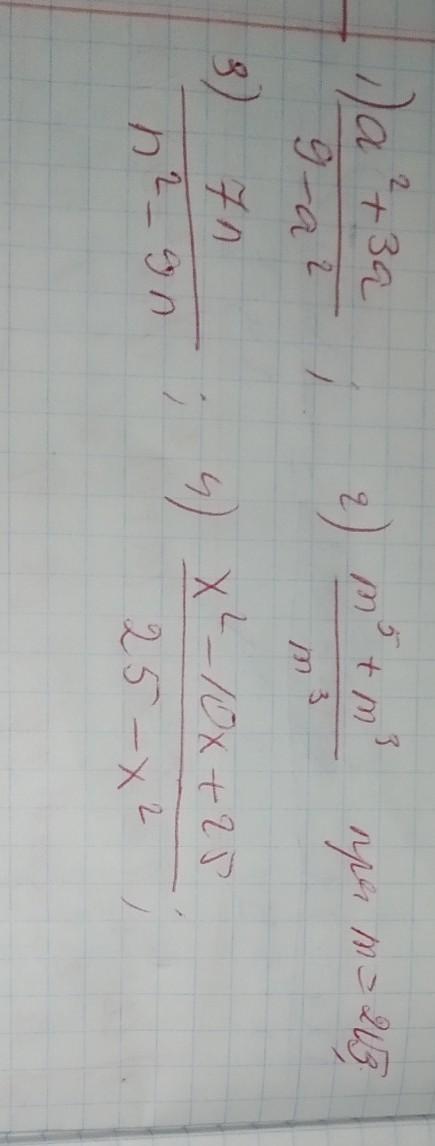 1) a² + 3a / 9 - a² ; 2) m⁵ + m³ / m³ при m = 2√3;
3) 7n / n² - 9n ; 4) x² - 10x + 25 / 25 - x² ;